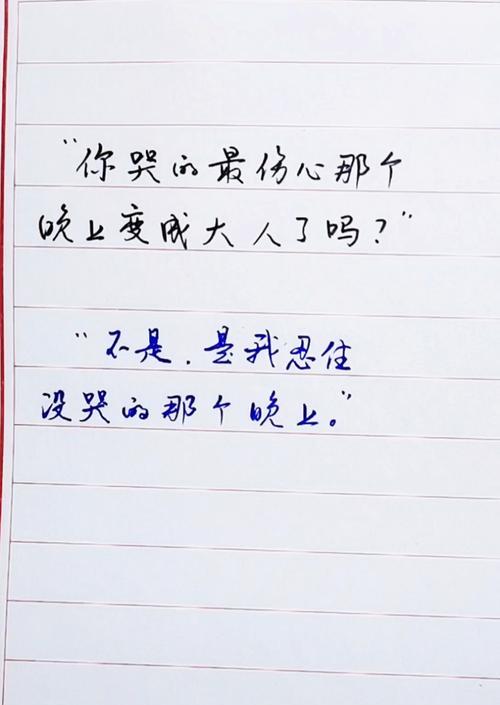 “你哭的最伤心那个
晚上变成大人了吗？”
“不是，是我忍住
没哭的那个晚上。”